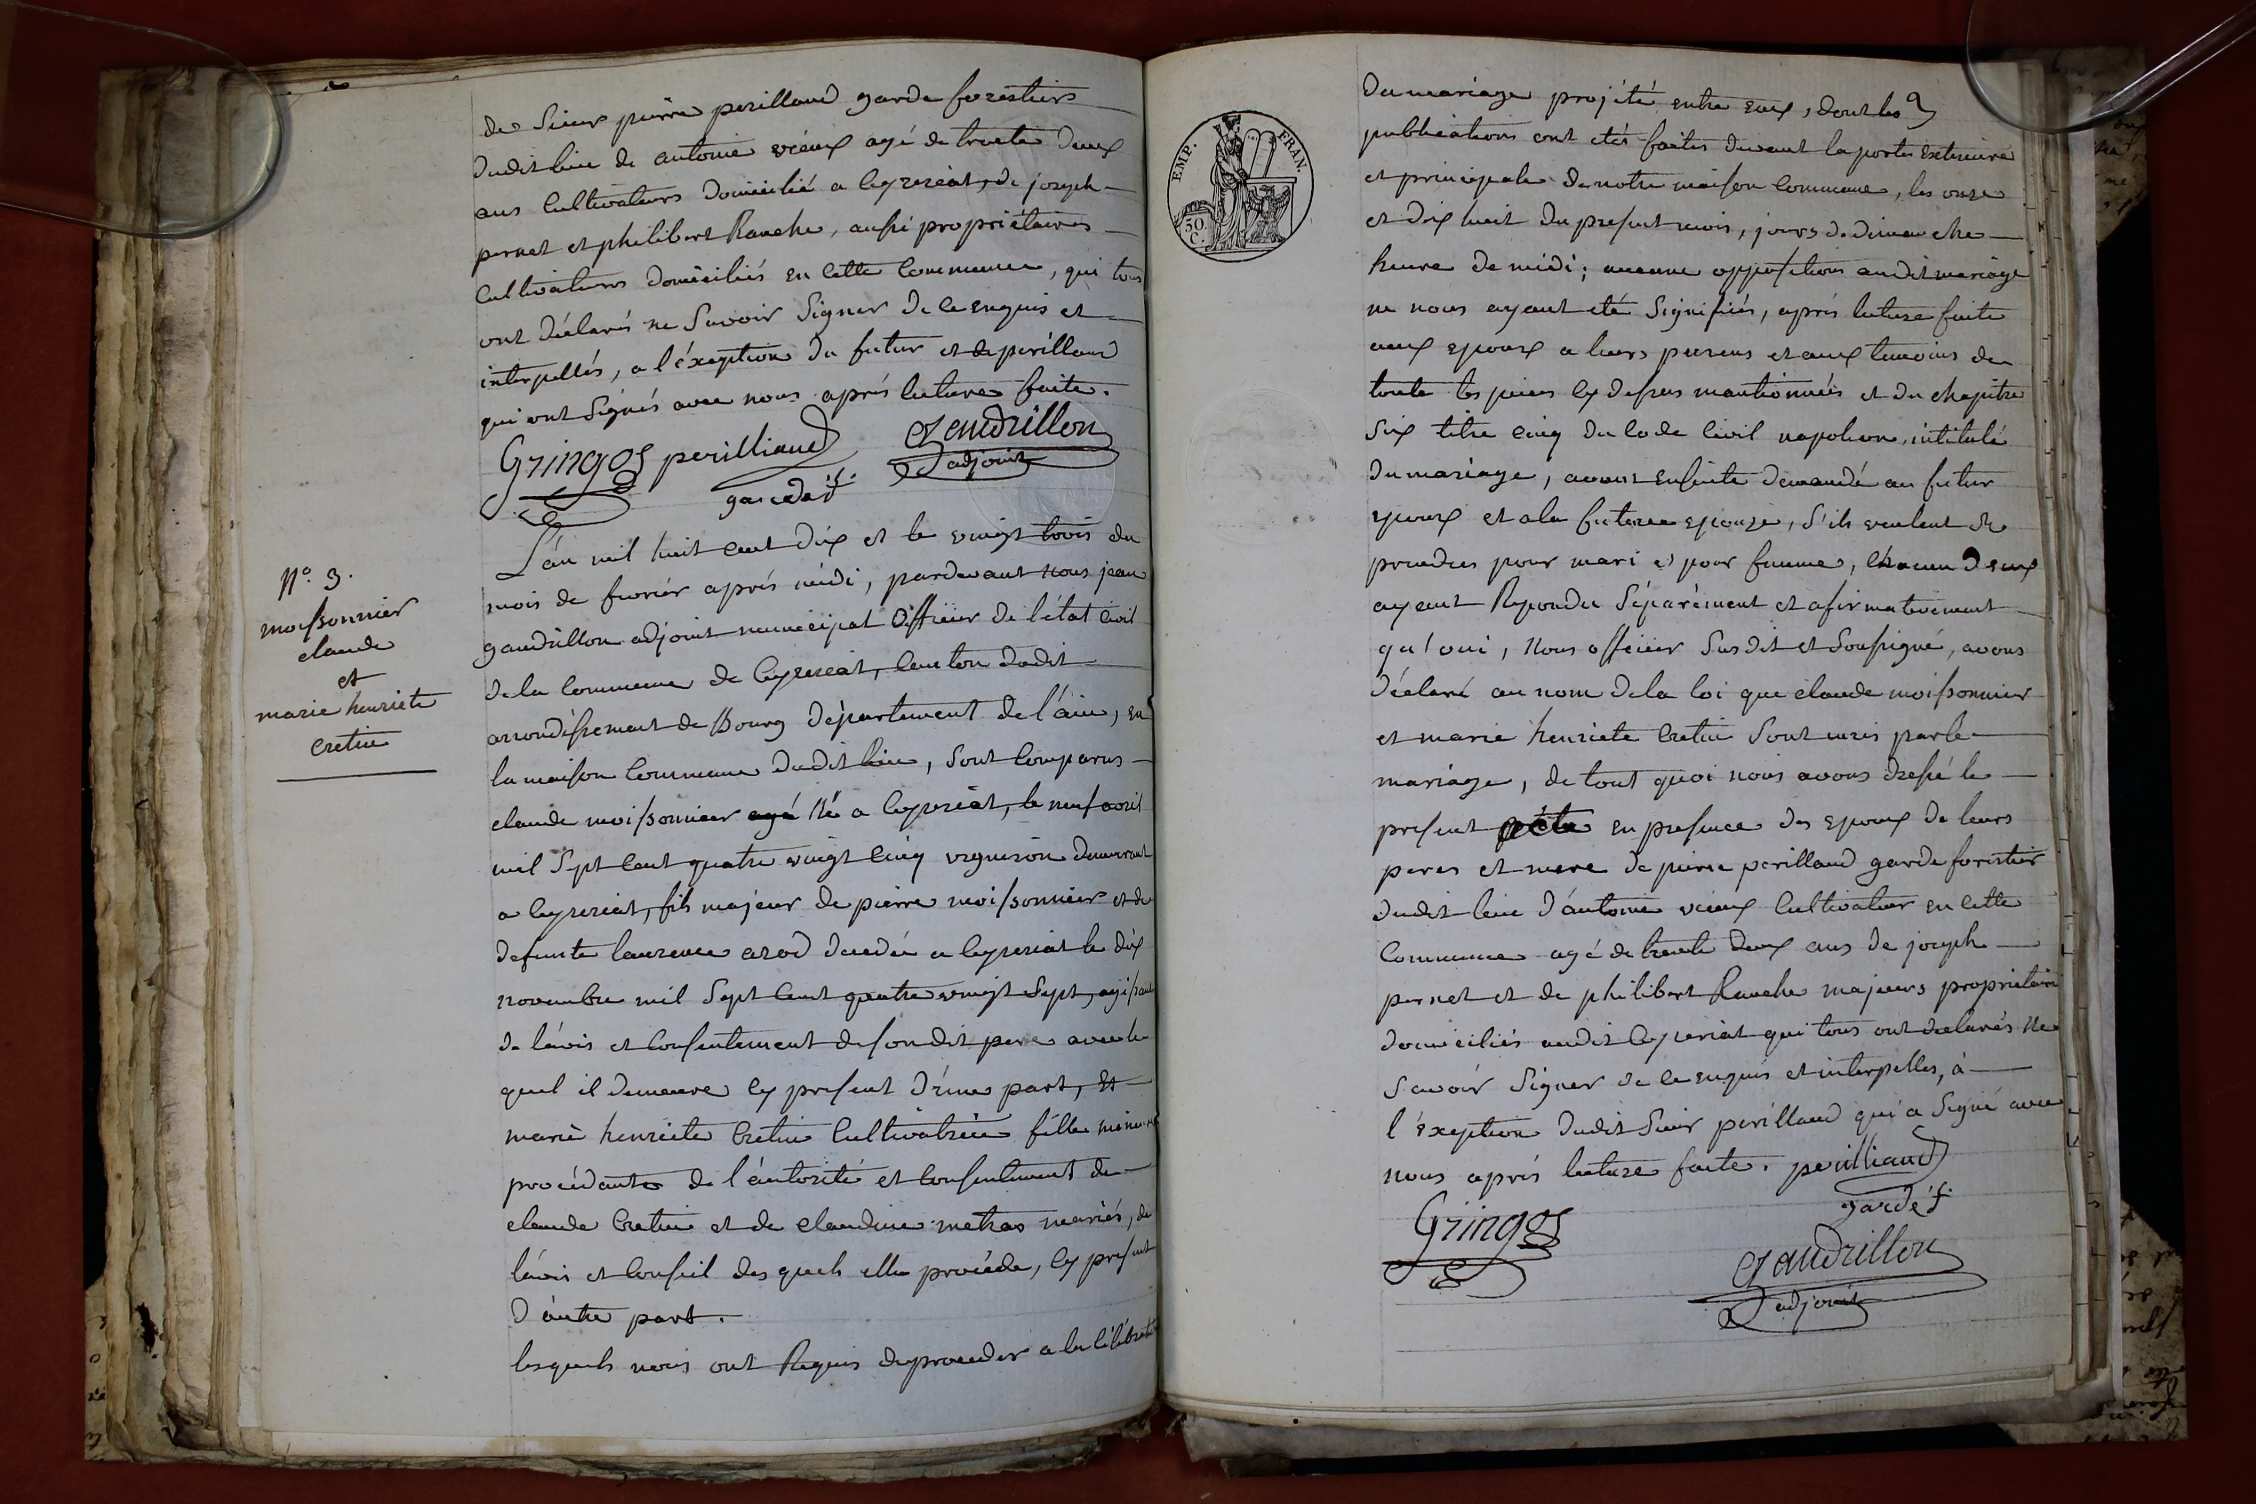 de Sieur pierre perillaud garde forestiers
dudit lieu de antoine vieux agé de trente deux
ans Cultivateurs domicilié a Ceyzeriat, de joseph
pernet et philibert Ranche, aussi propriétaires
Cultivateurs domiciliés en Cette Commune, qui tous
ont déclarés ne Savoir Signer de ce enquis et
interpellés, a l'éxeption du futur et de perillaud
qui ont Signés avec nous aprés lecture faite.
Gringoz perilliaud gaudrillon
garde f. adjoint
N.o 3.
moissonnier
claude
et
marie henriete
cretin
L'an mil huit cent dix et le vingt trois du
mois de fevrier aprés midi, pardevant nous jean
gaudrillon adjoint municipal Officier de l'état Civil
de la Commune de Ceyzeriat, Canton dudit
arrondissement de Bourg département de l'ain, en
la maison Commune dudit lieu, Sont Comparus
claude moissonnier agé Né a Ceyzeriat, le neuf avril
mil Sept Cent quatre vingt Cinq vigneron demeurant
a Ceyzeriat, fils majeur de pierre moissonnier et de
defunte laurence arod decedée a Ceyzeriat le dix
novembre mil Sept Cent quatre vingt Sept, agissant
de lávis et Consentement de Son dit pere avec le
quel il demeure Cy present d'une part, Et
marie henriete Cretin Cultivatrice fille mineure
procédante de l'áutorité et Consentement de
claude Cretin et de claudine metras mariés, de
lávis et Conseil des quels elle procéde, Cy present
d'áutre part.
lesquels nous ont Requis de proceder a la Célébration
EMP. FRAN.
50 C.
Du mariage projété entre eux, dont les
publications ont étés faites devant la porte exterieure
et principale de notre maison Commune, les onze
et dix huit du present mois, jours de dimanche
heure de midi; aucune oppositions audit mariage
ne nous ayant été Signifiés, aprés lecture faite
aux epoux a leurs parens et aux temoins de
toute les pieces Cy dessus mantionnées et du chapitre
Six titre Cinq du Code Civil napoleon, intitulé
du mariage, avons ensuite demandé au futur
epoux et a la future epouze, S'ils veulent se
prendre pour mari et pour femme, Chacun deux
ayant Repondu Séparèment et afirmativement
qu'oui, Nous officier Susdit et Soussigné, avons
déclaré au nom de la loi que claude moissonnier
et marie henriete Cretin Sont unis par le
mariage, de tout quoi nous avons dressé le
present acte en presence des epoux de leurs
peres et mere de pierre perillaud garde forestier
dudit lieu d'ántoine vieux Cultivateur en Cette
Commune agé de trente deux ans de joseph
pernet et de philibert Ranche majeurs proprietaires
domiciliés audit Ceyzeriat qui tous ont declarés Ne
Savoir Signer de ce enquis et interpelles, à
l'éxeption dudit Sieur perillaud qui a Signé avec
nous aprés lecture faite. perilliaud
garde f.
Gringoz
gaudrillon
adjoint